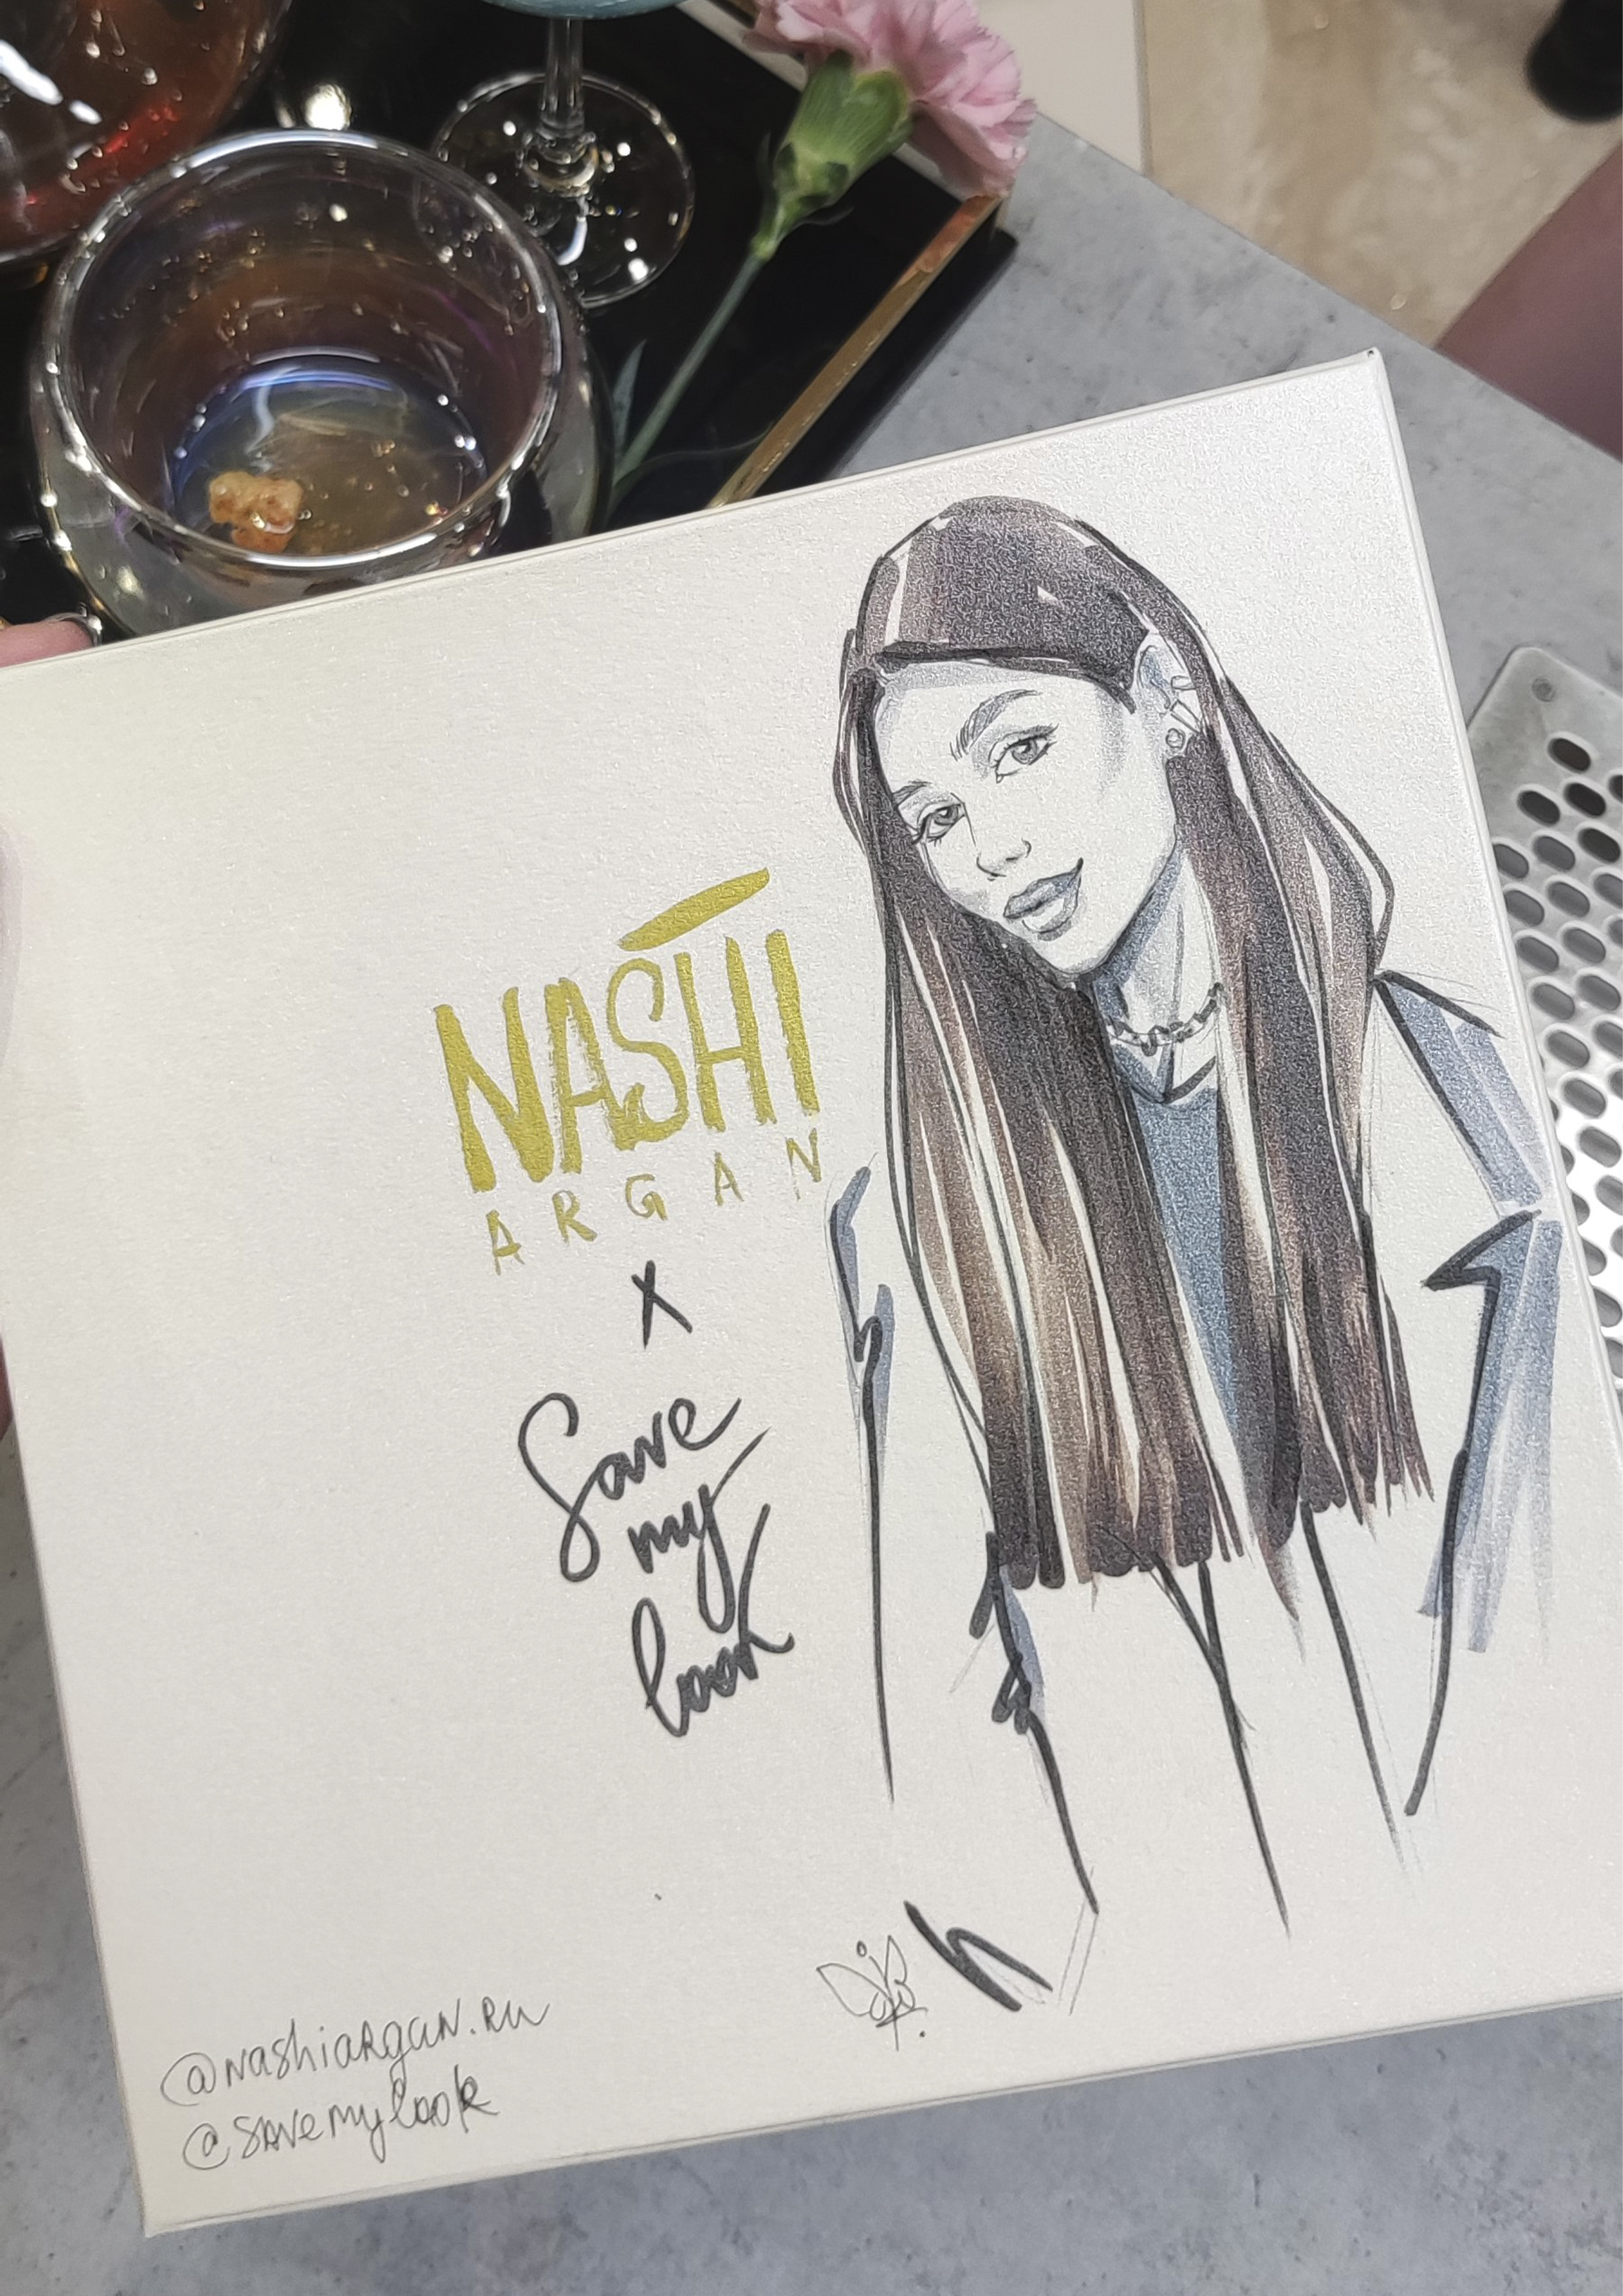 NASHI
ARGAN
X
Save
my
look
@nashiargan.ru
@savemylook